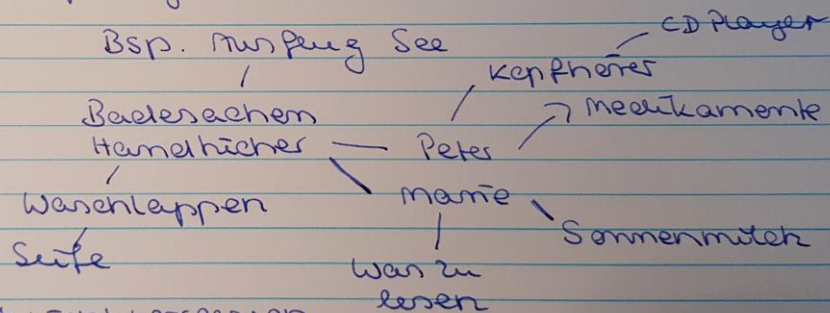 CD Player
Bsp. Ausflug See
Kopfhörer
Badesachen
Medikamente
Handtücher
Peter
Waschlappen
Marie
Sonnenmilch
Seife
Was zu
lesen